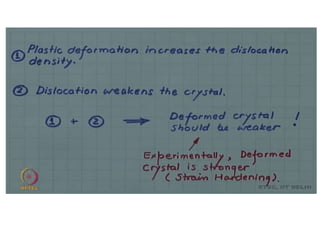 ① Plastic deformation increases the dislocation
density.
② Dislocation weakens the crystal.
① + ② → Deformed crystal
should be weaker !
Experimentally, Deformed
Crystal is stronger
(Strain Hardening).
NPTEL
ETSC, IIT DELHI